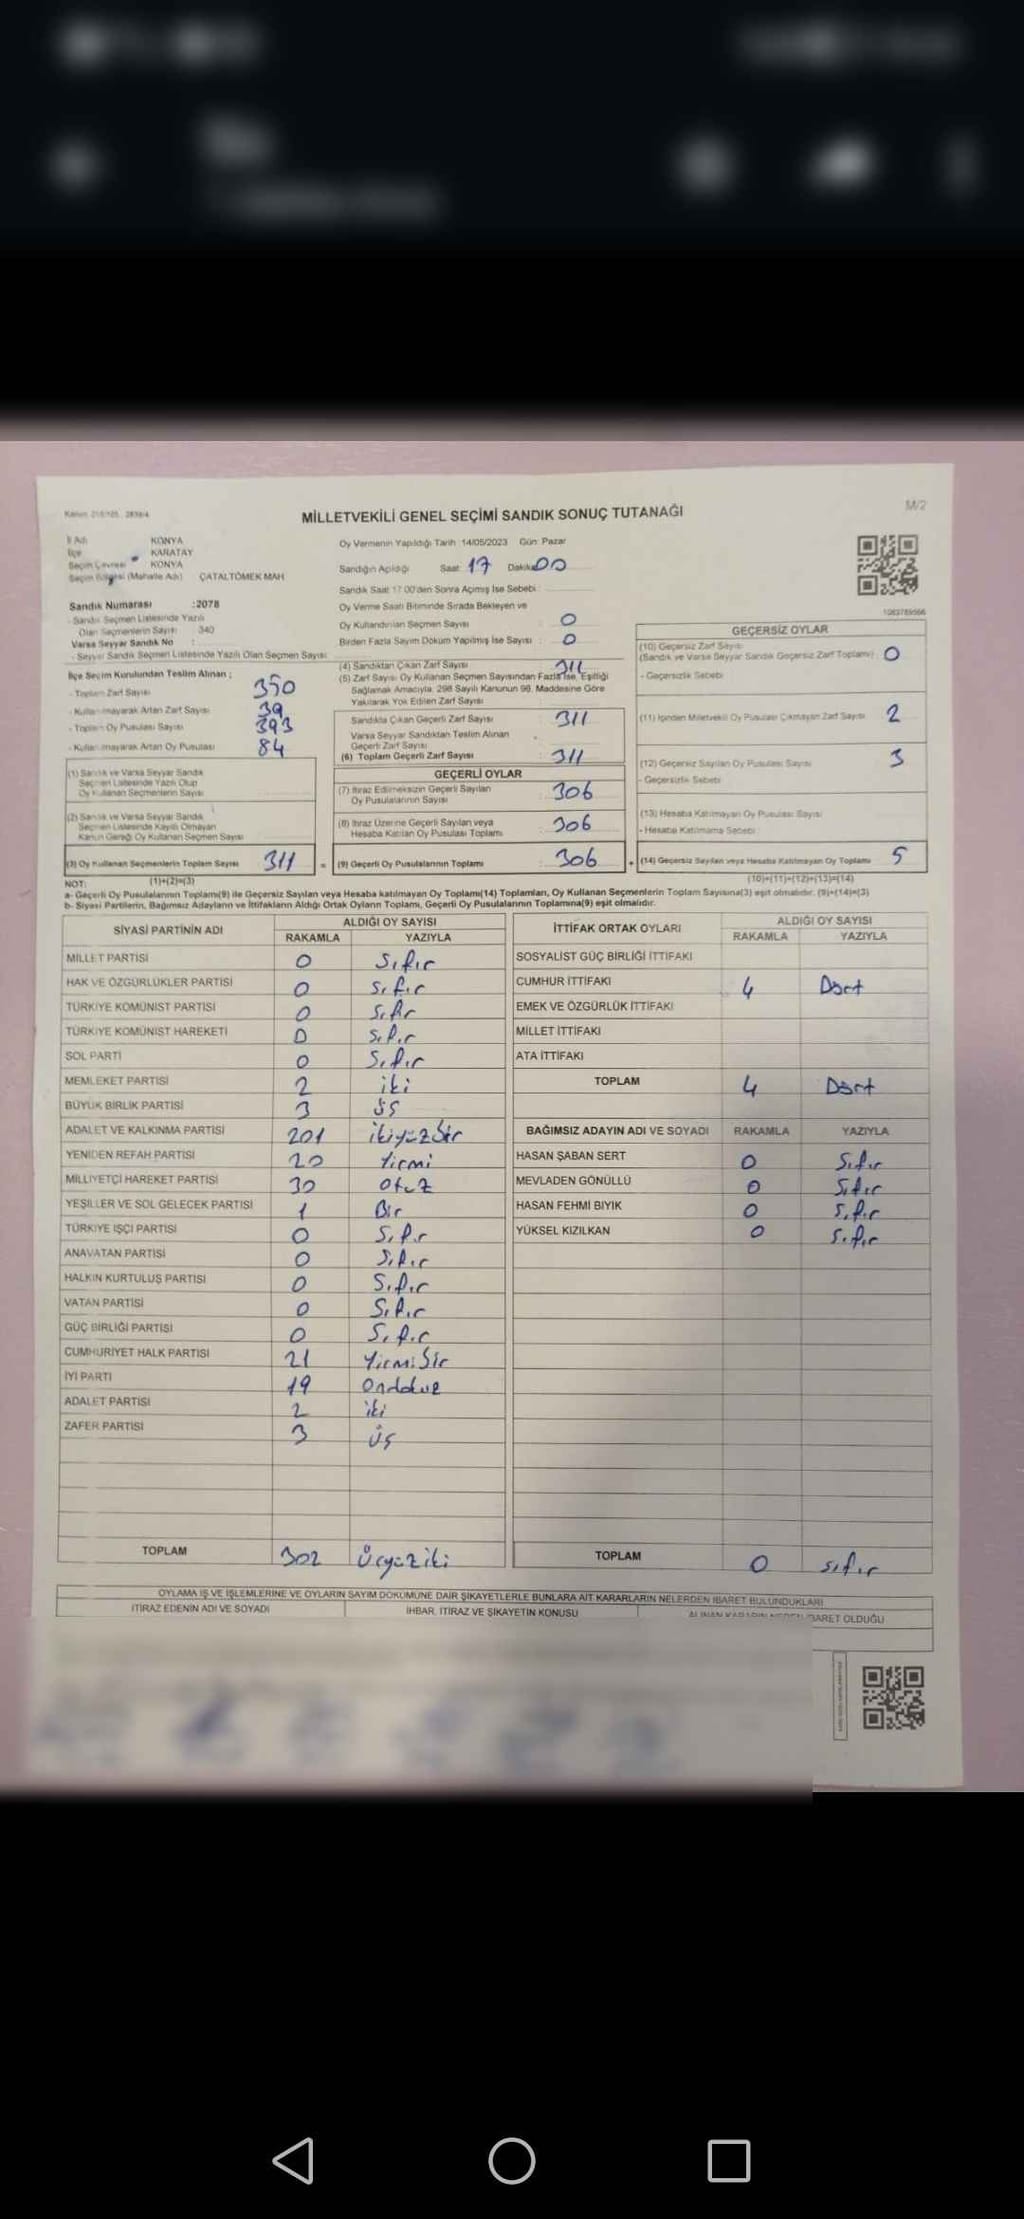 Kanun: 298/105, 2839/4
MİLLETVEKİLİ GENEL SEÇİMİ SANDIK SONUÇ TUTANAĞI
M/2
İl Adı KONYA
İlçe KARATAY
Seçim Çevresi KONYA
Seçim Bölgesi (Mahalle Adı) ÇATALTÖMEK MAH
Sandık Numarası :2078
- Sandık Seçmen Listesinde Yazılı
Olan Seçmenlerin Sayısı 340
Varsa Seyyar Sandık No :
- Seyyar Sandık Seçmen Listesinde Yazılı Olan Seçmen Sayısı
İlçe Seçim Kurulundan Teslim Alınan ;
- Toplam Zarf Sayısı 350
- Kullanılmayarak Artan Zarf Sayısı 39
- Toplam Oy Pusulası Sayısı 393
- Kullanılmayarak Artan Oy Pusulası 84
(1) Sandık ve Varsa Seyyar Sandık
Seçmen Listesinde Yazılı Olup
Oy Kullanan Seçmenlerin Sayısı
(2) Sandık ve Varsa Seyyar Sandık
Seçmen Listesinde Kayıtlı Olmayan
Kanun Gereği Oy Kullanan Seçmen Sayısı
(3) Oy Kullanan Seçmenlerin Toplam Sayısı 311 =
(1)+(2)=(3)
Oy Vermenin Yapıldığı Tarih :14/05/2023 Gün: Pazar
Sandığın Açıldığı Saat: 17 Dakika 00
Sandık Saat 17:00'den Sonra Açımış İse Sebebi :
Oy Verme Saati Bitiminde Sırada Bekleyen ve
Oy Kullandırılan Seçmen Sayısı : 0
Birden Fazla Sayım Döküm Yapılmış İse Sayısı : 0
(4) Sandıktan Çıkan Zarf Sayısı : 311
(5) Zarf Sayısı Oy Kullanan Seçmen Sayısından Fazla İse, Eşitliği
Sağlamak Amacıyla, 298 Sayılı Kanunun 98. Maddesine Göre
Yakılarak Yok Edilen Zarf Sayısı
Sandıkta Çıkan Geçerli Zarf Sayısı : 311
Varsa Seyyar Sandıktan Teslim Alınan
Geçerli Zarf Sayısı
(6) Toplam Geçerli Zarf Sayısı : 311
GEÇERLİ OYLAR
(7) İtiraz Edilmeksizin Geçerli Sayılan
Oy Pusulalarının Sayısı : 306
(8) İtiraz Üzerine Geçerli Sayılan veya
Hesaba Katılan Oy Pusulası Toplamı : 306
(9) Geçerli Oy Pusulalarının Toplamı : 306 +
GEÇERSİZ OYLAR
(10) Geçersiz Zarf Sayısı
(Sandık ve Varsa Seyyar Sandık Geçersiz Zarf Toplamı) : 0
- Geçersizlik Sebebi
(11) İçinden Milletvekili Oy Pusulası Çıkmayan Zarf Sayısı 2
(12) Geçersiz Sayılan Oy Pusulası Sayısı 3
- Geçersizlik Sebebi
(13) Hesaba Katılmayan Oy Pusulası Sayısı
- Hesaba Katılmama Sebebi
(14) Geçersiz Sayılan veya Hesaba Katılmayan Oy Toplamı 5
(10)+(11)+(12)+(13)=(14)
NOT:
a- Geçerli Oy Pusulalarının Toplamı(9) ile Geçersiz Sayılan veya Hesaba katılmayan Oy Toplamı(14) Toplamları, Oy Kullanan Seçmenlerin Toplam Sayısına(3) eşit olmalıdır. (9)+(14)=(3)
b- Siyasi Partilerin, Bağımsız Adayların ve İttifakların Aldığı Ortak Oyların Toplamı, Geçerli Oy Pusulalarının Toplamına(9) eşit olmalıdır.
SİYASİ PARTİNİN ADI ALDIĞI OY SAYISI
RAKAMLA YAZIYLA
MİLLET PARTİSİ 0 Sıfır
HAK VE ÖZGÜRLÜKLER PARTİSİ 0 Sıfır
TÜRKİYE KOMÜNİST PARTİSİ 0 Sıfır
TÜRKİYE KOMÜNİST HAREKETİ 0 Sıfır
SOL PARTİ 0 Sıfır
MEMLEKET PARTİSİ 2 iki
BÜYÜK BİRLİK PARTİSİ 3 üş
ADALET VE KALKINMA PARTİSİ 201 ikiyüzbir
YENİDEN REFAH PARTİSİ 20 Yirmi
MİLLİYETÇİ HAREKET PARTİSİ 30 otuz
YEŞİLLER VE SOL GELECEK PARTİSİ 1 Bir
TÜRKİYE İŞÇİ PARTİSİ 0 Sıfır
ANAVATAN PARTİSİ 0 Sıfır
HALKIN KURTULUŞ PARTİSİ 0 Sıfır
VATAN PARTİSİ 0 Sıfır
GÜÇ BİRLİĞİ PARTİSİ 0 Sıfır
CUMHURİYET HALK PARTİSİ 21 Yirmibir
İYİ PARTİ 19 Ondokuz
ADALET PARTİSİ 2 iki
ZAFER PARTİSİ 3 üş
TOPLAM 302 Üçyüziki
İTTİFAK ORTAK OYLARI ALDIĞI OY SAYISI
RAKAMLA YAZIYLA
SOSYALİST GÜÇ BİRLİĞİ İTTİFAKI
CUMHUR İTTİFAKI 4 Dört
EMEK VE ÖZGÜRLÜK İTTİFAKI
MİLLET İTTİFAKI
ATA İTTİFAKI
TOPLAM 4 Dört
BAĞIMSIZ ADAYIN ADI VE SOYADI RAKAMLA YAZIYLA
HASAN ŞABAN SERT 0 Sıfır
MEVLADEN GÖNÜLLÜ 0 Sıfır
HASAN FEHMİ BIYIK 0 Sıfır
YÜKSEL KIZILKAN 0 Sıfır
TOPLAM 0 sıfır
OYLAMA İŞ VE İŞLEMLERİNE VE OYLARIN SAYIM DÖKÜMÜNE DAİR ŞİKAYETLERLE BUNLARA AİT KARARLARIN NELERDEN İBARET BULUNDUKLARI
İTİRAZ EDENİN ADI VE SOYADI İHBAR, İTİRAZ VE ŞİKAYETİN KONUSU ALINAN KARARIN NEDEN İBARET OLDUĞU